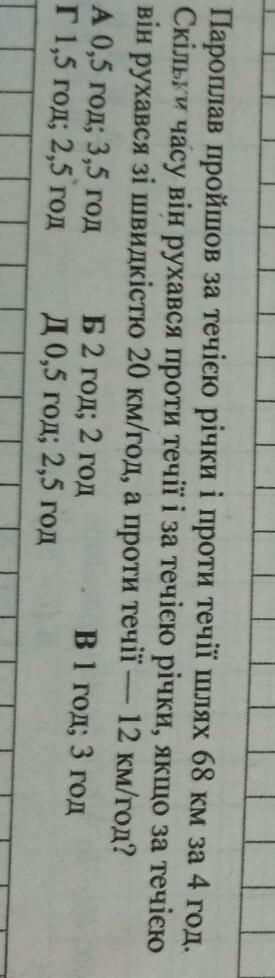 Пароплав пройшов за течією річки і проти течії шлях 68 км за 4 год.
Скільки часу він рухався проти течії і за течією річки, якщо за течією
він рухався зі швидкістю 20 км/год, а проти течії — 12 км/год?
А 0,5 год; 3,5 год Б 2 год; 2 год В 1 год; 3 год
Г 1,5 год; 2,5 год Д 0,5 год; 2,5 год